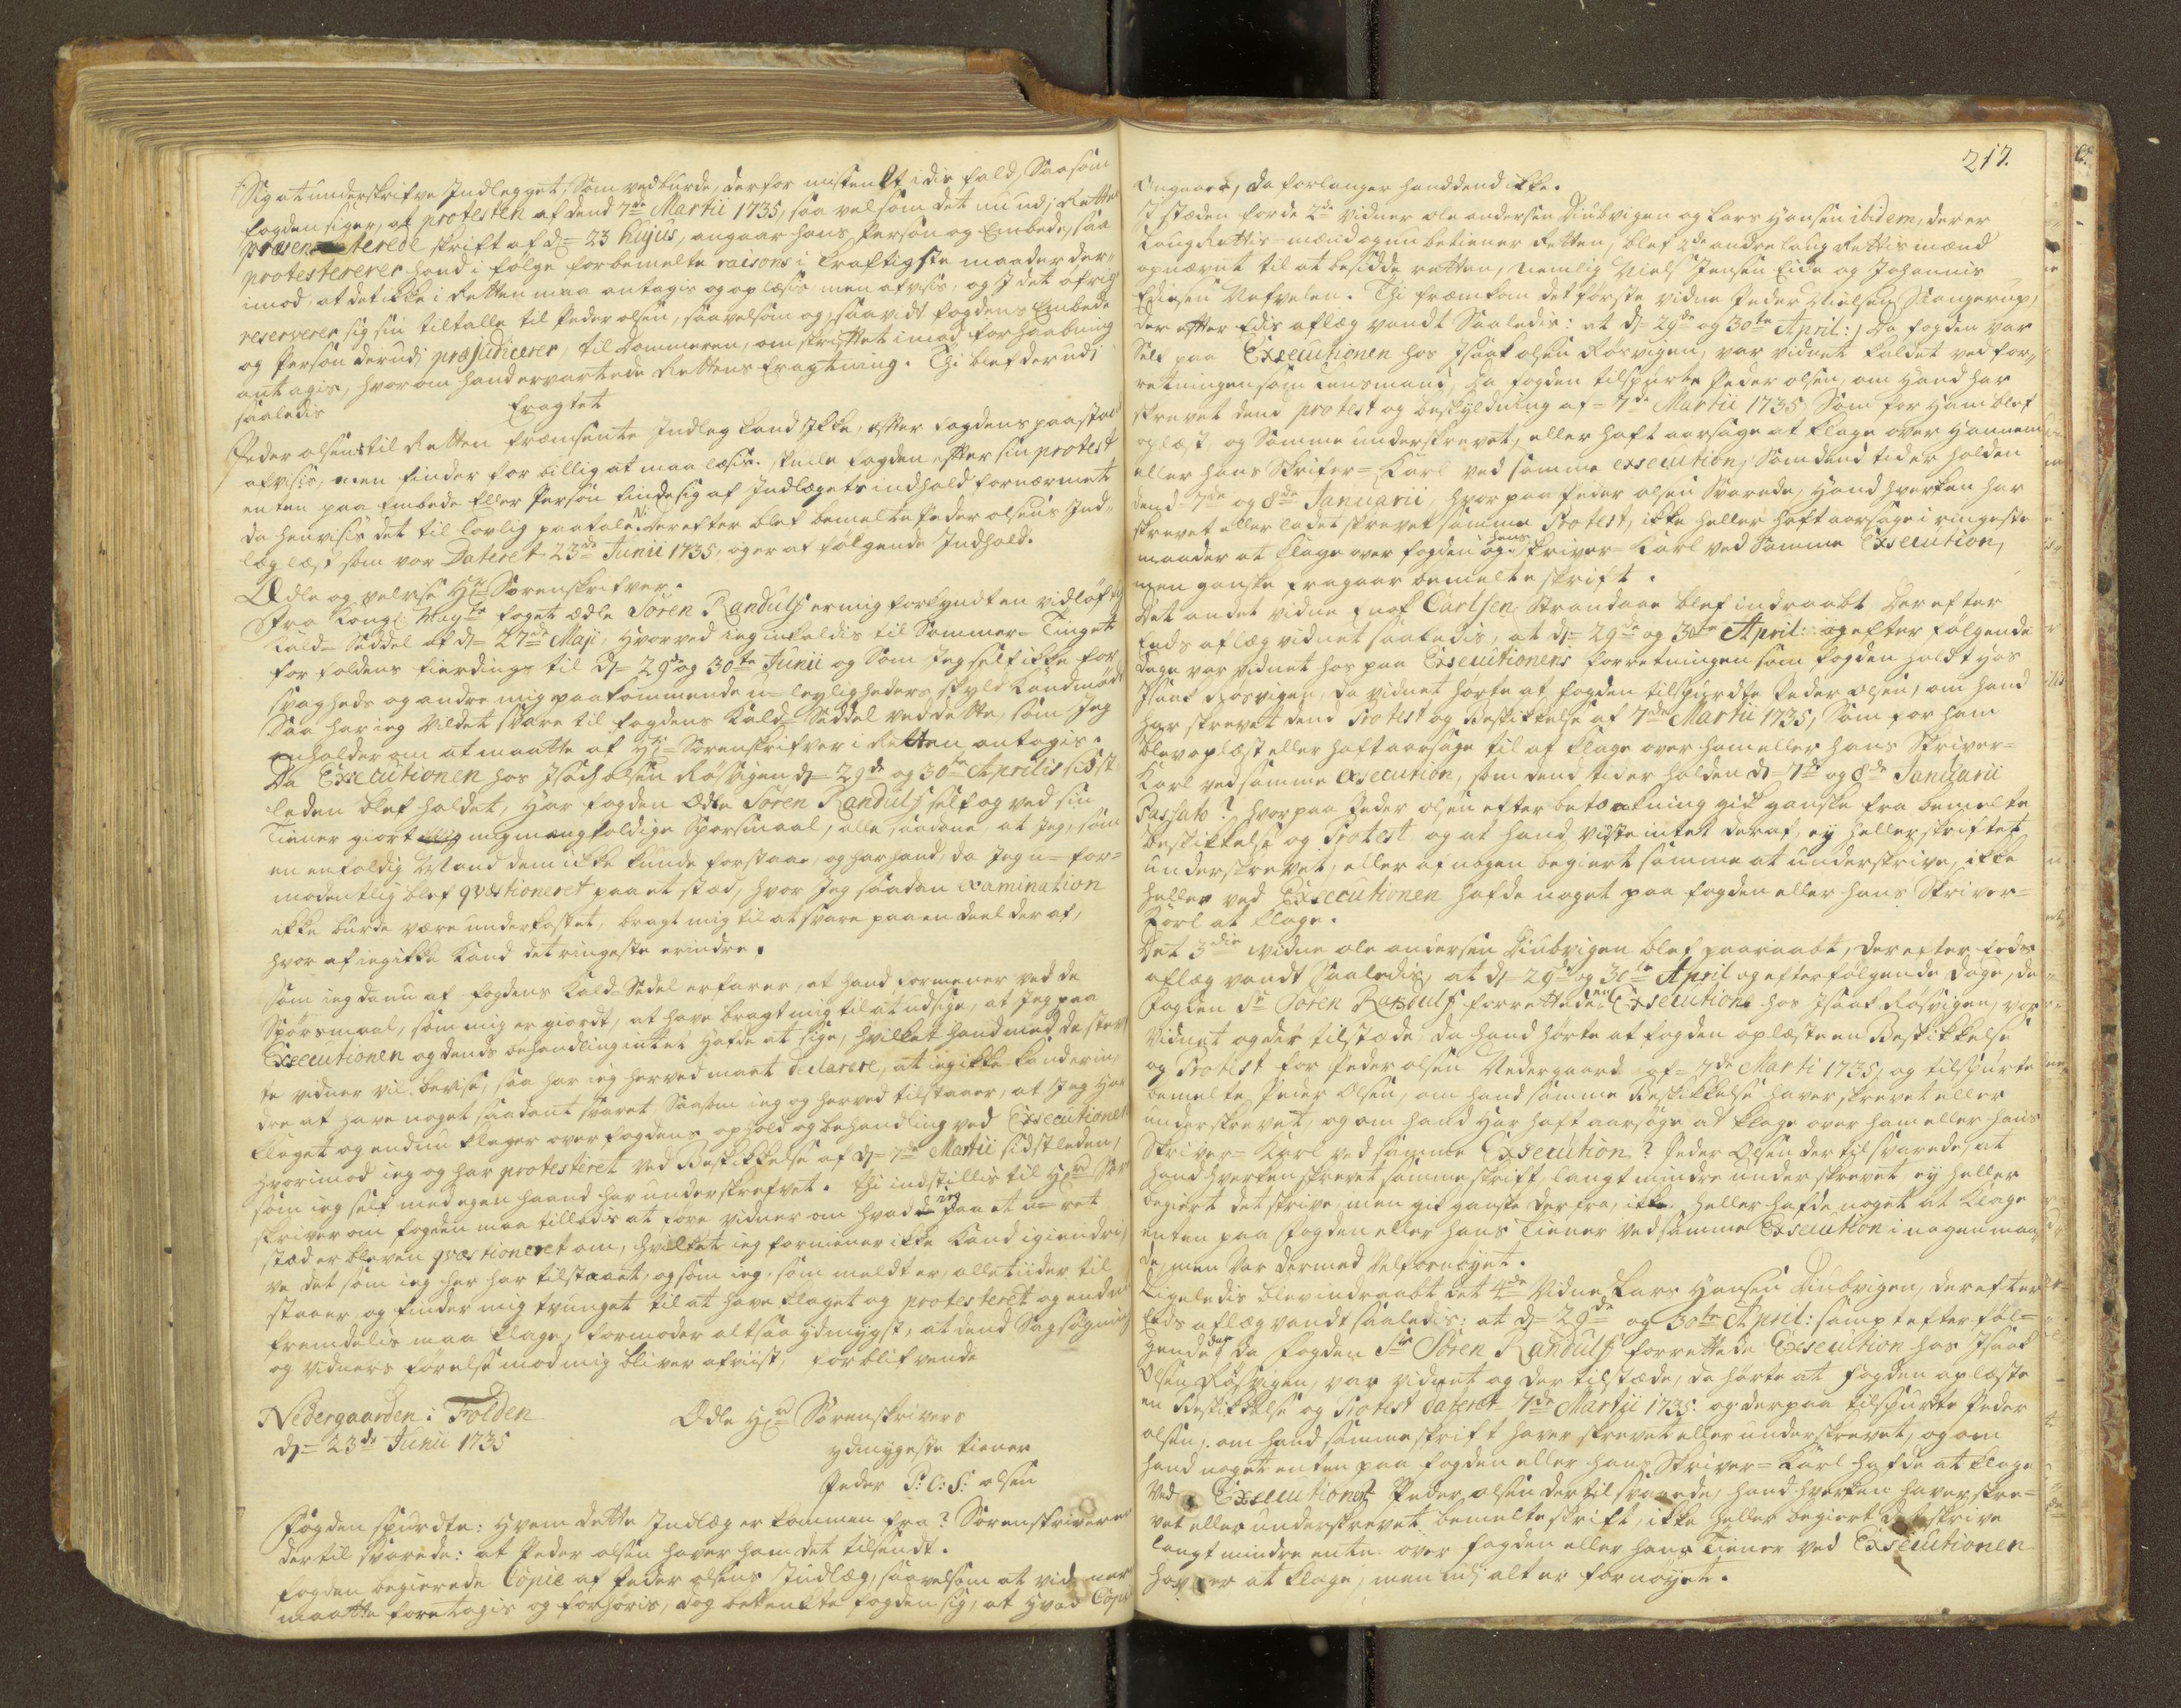 Sig at underskrifve Indlegget, Som ved burde, derfor mistenkt i dis fald, Saasom
fogden siger, at protesten af dend 7de Martii 1735, saa vel som det nu udj Retten
præsenterede skrift af d= 23 hujus, angaar hans Persohn og Embede, saa
protesterer hand i følge forbemelte raisons i kraftigste maader der„
imod, at det ikke i Retten maa antagis og oplæsis men afvises, og I det øfrig
reserverer sig sin tiltalle til Peder olsen, saavelsom og, saavidt fogdens Embede
og Person derudj præjudicerer, til Dommeren, om skriftet imod forhaabning
antagis, hvorom hand ervartede Rettens Eragtning. Thi blef derudj
saaledis Eragtet
Peder olsens til Retten fremsente Indleg kand Ikke, efter fogdens paastand
afvises, men finder for billig at maa læsis. Skulle fogden efter sin protest
enten paa Embede Eller Person finde sig af Indlægets indhold fornærmet
da henvises det til lovlig paatale. Derefter blef bemelte Peder olsens Ind„
læg læst som var Dateret 23de Junii 1735, og er af følgende Indhold.
Ædle og velvise Hr Sorenskrifver.
Fra Kongl: Mayts foget ædle Søren Randulf er mig forkyndt en vidløftig
Kald= Seddel af d= 27de Maji, hvorved ieg indkaldis til Sommer= Tinget
for foldens fierding til d= 29de og 30te Junii og Som Jeg self ikke for
svagheds og andre mig paakommende u=leyligheders skyld kand møde
Saa har ieg vildet svare til fogdens Kald= Seddel ved dette, som Jeg
anholder om at maatte af Hr Sorenskrifver i Retten antagis.
Da Executionen hos Isach olsen Røsvigen d= 29de og 30te Aprilis sidst
leden blef holdet, har fogden Ædle Søren Randulf self og ved sin
Tiener giort mig mangfoldige Spørsmaal, alle saadane, at Jeg, som
en enfoldig Mand dem ikke kunde forstaae, og har hand, da Jeg u=for=
modentlig blef qvæstioneret paa et stæd, hvor Jeg saadan examination
ikke burde være underkastet, bragt mig til at svare paa en deel deraf,
hvor af ieg ikke kand det ringeste erindre.
som ieg da nu af fogdens Kald= Sedel erfarer, at hand formener ved de
Spørsmaal, som mig er giordt, at have bragt mig til at udsige, at Jeg paa
Executionen og dends behandling intet hafde at sige, hvilket hand med de stevn
te vidner vil bevise, saa har ieg herved maat declarere, at ieg ikke kand erin„
dre at have noget saadant svaret, Saasom ieg og herved tilstaaer, at Jeg har
klaget og endnu klager over fogdens ophold og behandling ved Executionen
hvorimod ieg og har protesteret ved Beskikkelse af d= 7de Martii sidstleden,
som ieg self med egen haand har underskrefvet. Thi indstillis til Hr Sor
skriver om fogden maa tilladis at føre vidner om hvad jeg paa et u=ret
stæd er bleven qvæstioneret om, hvilket ieg formener ikke kand igiendri„
ve, det som ieg her har tilstaaet, og som ieg, som meldt er, alle tiider til
staaer, og finder mig tvunget til at have klaget og protesteret og endnu
fremdelis maa klage, formoder altsaa ydmygst, at dend Sagsøgning
og Vidners førelse mod mig bliver afviist, forblifvende
Nedergaarden i Folden
d= 23de Junii 1735
Ædle Hr Sørenskrivers
ydmygeste tiener
Peder P: O: S: olsen
Fogden spurdte: hvem dette Indlæg er kommen fra? Sorenskriveren
dertil svarede: at Peder olsen haver ham det tilsendt.
Fogden begierede Copie af Peder olsens Indlæg, saavelsom at vidner
maatte foretagis og forhøris, dog betenkte fogden sig, at hvad Copie
217.
Angaaer, da forlanger hand dend ikke.
I stæden for de 2de vidner ole andersen Diubvigen og Lars Hansen ibidem, der er
Laug Rettis=mænd og nu betiener Retten, blef 2de andre laug Rettis mænd
opnævnt til at besidde retten, nemlig Niels Jensen Eide og Johannis
Ellesen Nefvelen. Thi fremkom det første vidne Peder Nielsen Slangerup,
der efter Edis aflæg vandt Saaledis: at d= 29de og 30te April:, Da fogden var
Self paa Executionen hos Isaak olsen Røsvigen, var vidnet kaldet ved for„
retningen som Lensmand, Da fogden tilspurte Peder olsen, om hand har
skrevet dend protest og beskyldning af= 7de Martii 1735, Som for ham blef
oplæst, og Samme underskrevet, eller haft aarsage at klage over hannem
eller hans Skrifver= Karl ved samme execution, Som dend tid er holden
dend 7de og 8de Januarii, hvorpaa Peder olsen Svarede, Hand hverken har
skrevet eller ladet skrevet samme Protest, ikke heller haft aarsage i ringeste
maader at klage over fogden og hans Skriver= Karl ved Samme Execution,
men ganske fragaar bemelte skrift.
Det andet vidne Enok Carlsen Strandaae blef indraabt Derefter
Eeds aflæg vidnet saaledis, at d= 29de og 30te April: og efter følgende
dage var vidnet hos paa Executionens forretningen som fogden holdt hos
Isaak Røsvigen, da vidnet hørte at fogden tilspurdte Peder olsen, om hand
har skrevet dend Protest og Beskikkelse af 7de Martii 1735, Som for ham
blev oplæst eller haft aarsage til at klage over ham eller hans Skriver=
Karl ved samme Execution, som dend tid er holden d= 7de og 8de Januarii
Passato? hvorpaa Peder olsen efter betænkning gik ganske fra bemelte
beskikkelse og Protest og at hand viste intet deraf, ey heller skriftet
underskrevet, eller af nogen begiert samme at underskrive, ikke
heller ved Executionen hafde noget paa fogden eller hans Skriver=
Karl at klage.
Det 3die vidne ole andersen Diubvigen blef paaraabt, der efter Eeds
aflæg vandt Saaledis, at d= 29de og 30te April og efterfølgende dage, da
fogden Sr Søren Randulf forrettede en Execution hos Isaak Røsvigen, var
Vidnet og der tilstæde, da hand hørte at fogden oplæste en Beskikkelse
og Protest for Peder olsen Nedergaard af= 7de Marti 1735, og tilspurte
bemelte Peder Olsen, om hand samme Beskikkelse haver skrevet eller
underskrevet, og om hand har haft aarsage at klage over ham eller hans
Skriver= Karl ved samme Execution? Peder Olsen der til svarede, at
hand hverken skrevet samme skrift, langt mindre underskrevet, ey heller
begiert det skrive, men gik ganske derfra, ikke heller hafde noget at klage
enten paa fogden eller hans Tiener ved samme Execution i nogen maa„
de, men var dermed velfornøyet.
Ligeledis blev indraabt det 4de Vidne Lars Hansen Diubvigen, der efter
Eds aflæg vandt saaledis: at d= 29de og 30te April: samt efterføl=
gende dage Da fogden Sr Søren Randulf forrettede Execution hos Isaak
Olsen Røsvigen, var vidnet og der tilstæde, da hørte at fogden oplæste
en Beskikkelse og Protest dateret 7de Martii 1735 og derpaa tilspurte Peder
olsen, om hand samme skrift haver skrevet eller underskrevet, og om
hand noget enten paa fogden eller hans Skriver= Karl hafde at klage
Ved Executionen? Peder olsen dertil svarede, hand hverken haver skre=
vet eller underskrevet bemelte skrift, ikke heller begiert det skrive
langt mindre enten over fogden eller hans Tiener ved Executionen
haver at klage, men udj alt er fornøyet.